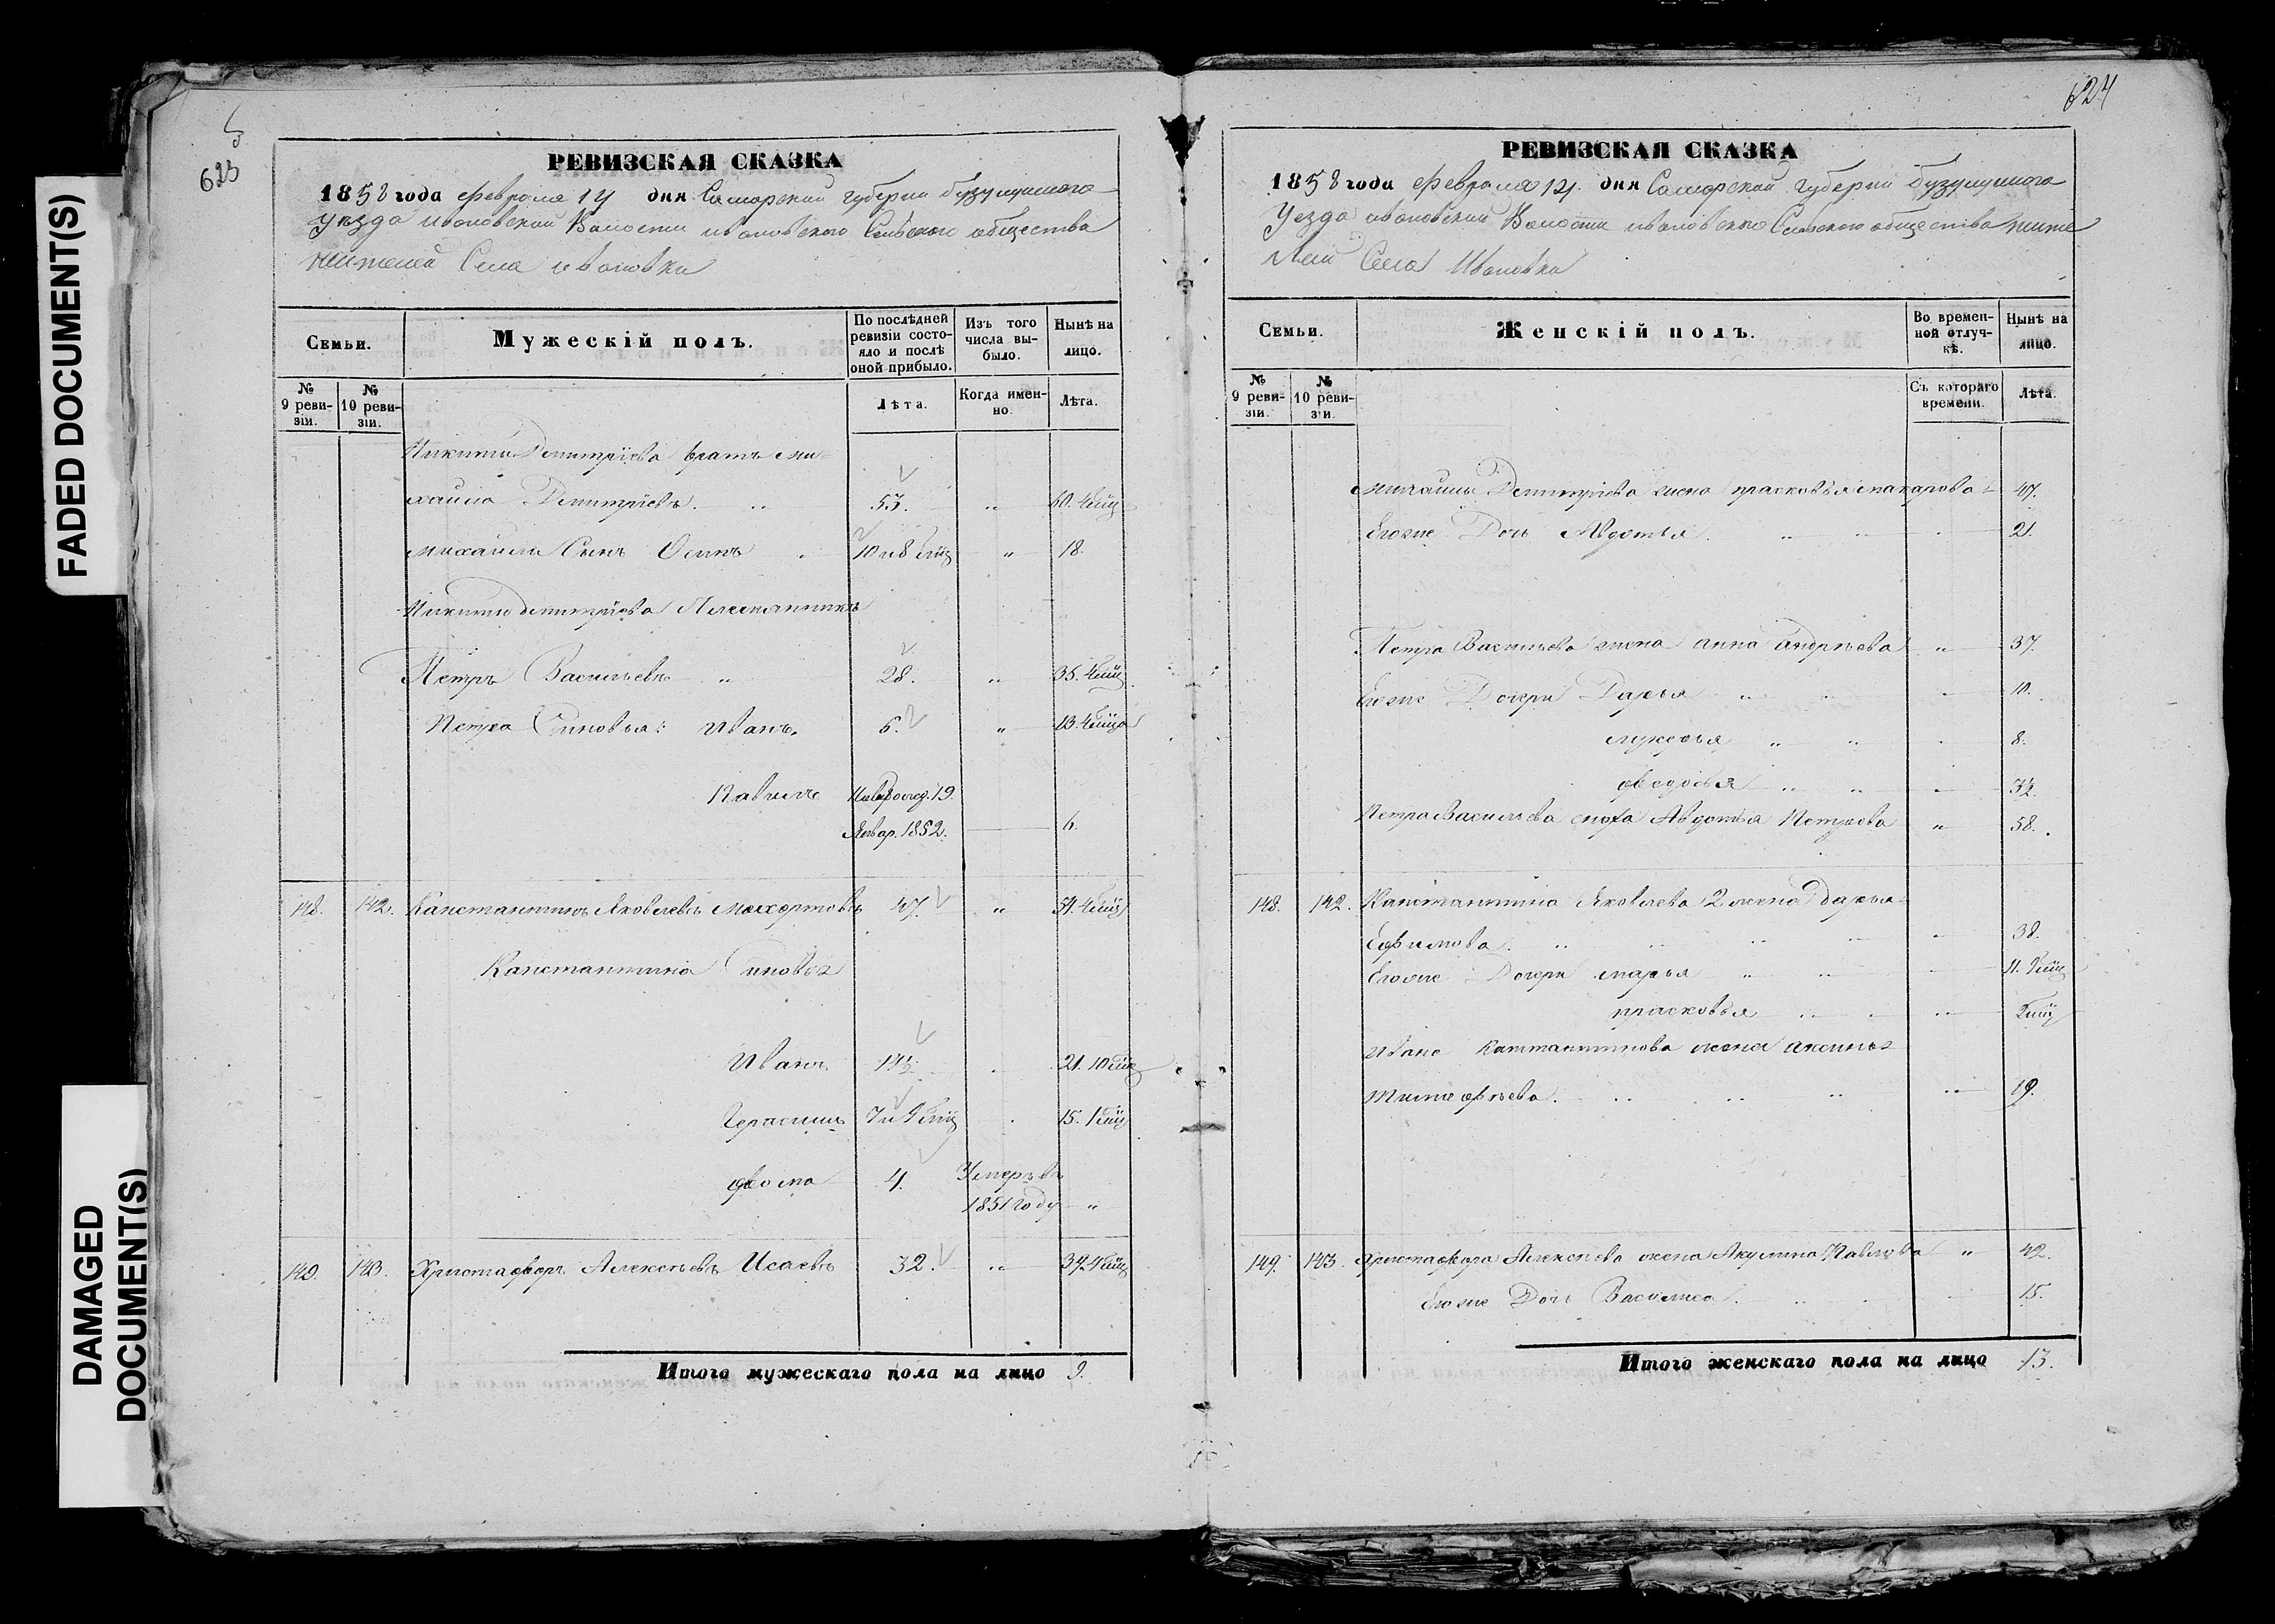 FADED DOCUMENT(S)
DAMAGED
DOCUMENT(S)
623
РЕВИЗСКАЯ СКАЗКА
1858 года февраля 14 дня Самарской губернии бузулуцкого
уезда ивановской Волости ивановского Сельского общества
жителей Села ивановки
Семьи.
Мужескій полъ.
По послѣдней
ревизіи состо-
яло и послѣ
оной прибыло.
Изъ того
числа вы-
было.
Нынѣ на
лицо.
№
9 реви-
зіи.
№
10 реви-
зіи.
Лѣта.
Когда имен-
но.
Лѣта.
Никиты Дмитріева братъ ми=
хайла Дмитріевъ. 53. „ 60.
михайлы Сынъ Осипъ 10 „ 18.
Никиты дмитріева Племянникъ
Петръ Васильевъ „ 28. „ 35.
Петра Синовья: Иванъ. 6. „ 13.
Павилъ 19
Январ. 1852. 6.
148. 142. Канстантинъ Яковлевъ 47. „ 54.
Канстантина Синовья
Иванъ 21. 10
Герасимъ 15. 1
фома 4. Умеръ въ
1851 году „
149. 143. Христафоръ Алексеевъ Исаевъ 32. „ 39.
Итого мужескаго пола на лицо 9.
624
РЕВИЗСКАЯ СКАЗКА
1858 года февраля 14. дня Самарской губернии бузулуцкого
Уезда ивановской Волости ивановского Сельского общества жите
лей Села Ивановки
Семьи.
Женскій полъ.
Во времен-
ной отлуч-
кѣ.
Нынѣ на
лицо.
№
9 реви-
зіи.
№
10 реви-
зіи.
Съ котораго
времени.
Лѣта.
михайлы Дмитріева жена прасковья макарова 47.
Егоже Дочь Авдотья. „ „ 21.
Петра Васильева жена анна андрѣева „ 37.
Егоже Дочери Дарья „ 10.
лукерья „ „ 8.
федосья „ „
Петра Васильева Авдотья Петрова „ 58.
148. 142. Канстантина Яковлева 2 жена Дарья
Ефимова. 38.
Егоже Дочери марья „ 11.
прасковья
Ивана Канстантинова жена аксинья
тимофеева. 19.
149. 143. Христафора Алексеева жена Акулина Павлова „ 42.
Егоже Дочь Василиса. 15.
Итого женскаго пола на лицо 13.